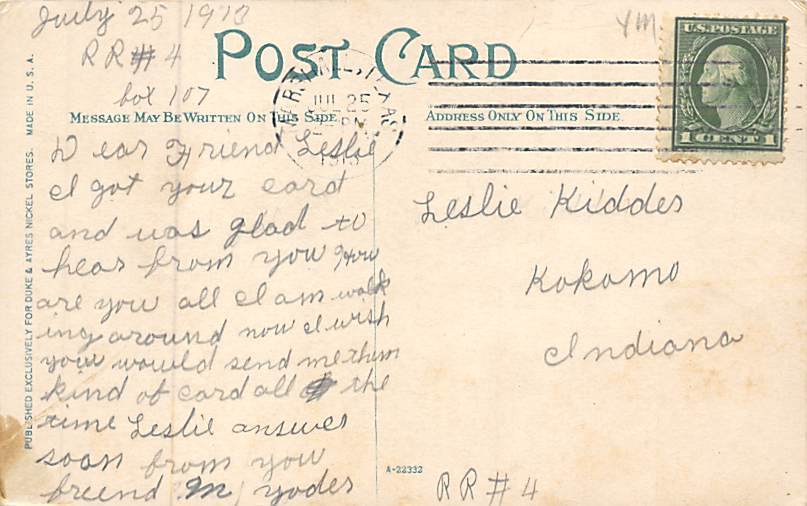 July 25 1913
RR#4
box 107
YM
POST CARD
MESSAGE MAY BE WRITTEN ON THIS SIDE
ADDRESS ONLY ON THIS SIDE
U.S. POSTAGE
1 CENT 1
JUL 25
Dear Friend Leslie
I got your card
and was glad to
hear from you How
are you all I am walk
ing around now I wish
your would send me them
kind of card all the
time Leslie answer
soon from you
freend M, yoder
Leslie Kidder
Kokomo
Indiana
RR#4
A-22332
PUBLISHED EXCLUSIVELY FOR DUKE & AYRES NICKEL STORES. MADE IN U.S.A.